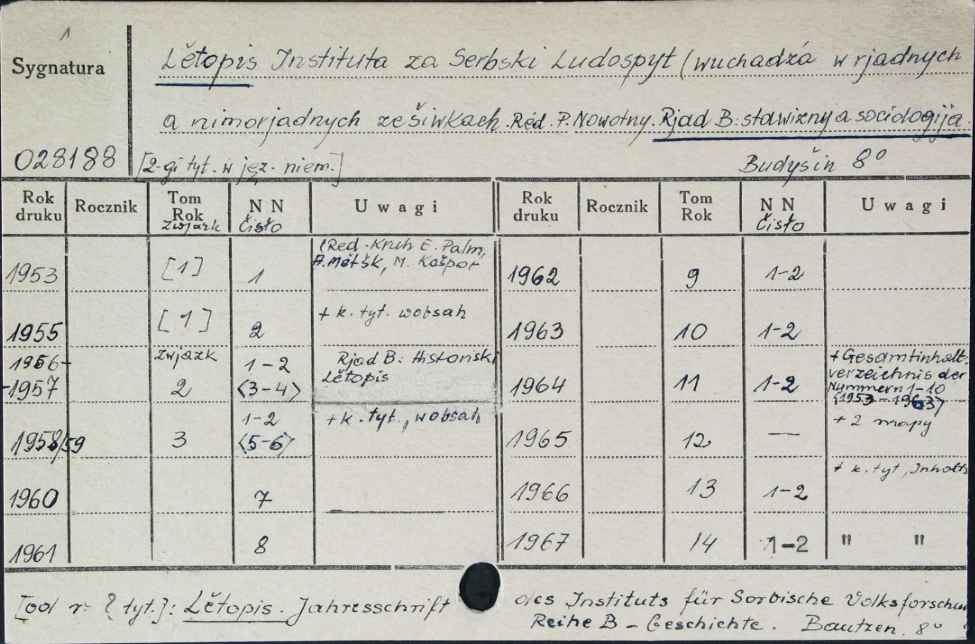 1
Sygnatura
Lětopis Instituta za Serbski Ludospyt (wuchadźa w rjadnych
a nimorjadnych zešiwkach. Red. P. Nowotny. Rjad B: stawizny a sociologija.
028188 [2-gi tyt. w jęz. niem.] Budyšin 8°
Rok druku Rocznik Tom Rok zwjazk N N Čisło Uwagi Rok druku Rocznik Tom Rok N N Čisło Uwagi
1953 [1] 1 (Red. Kruh E. Palm, A. Mětšk, M. Kašpor 1962 9 1-2
1955 [1] 2 + k. tyt. wobsah 1963 10 1-2
1956-1957 zwjazk 2 1-2 <3-4> Rjad B: Historiski Lětopis 1964 11 1-2 + Gesamtinhalt verzeichnis der Nummern 1-10 (1953-1963)
1958/59 3 1-2 <5-6> + k. tyt., wobsah 1965 12 — + 2 mapy
1960 7 1966 13 1-2 + k. tyt, Inhalts
1961 8 1967 14 1-2 " "
[od r. tyt.]: Lětopis. Jahresschrift des Instituts für Sorbische Volksforschun
Reihe B - Geschichte. Bautzen. 8°